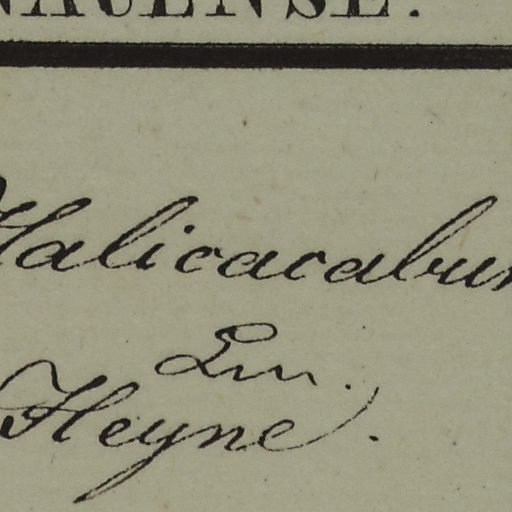 NAUENSE.
Halicacabum
Lin.
Heyne.